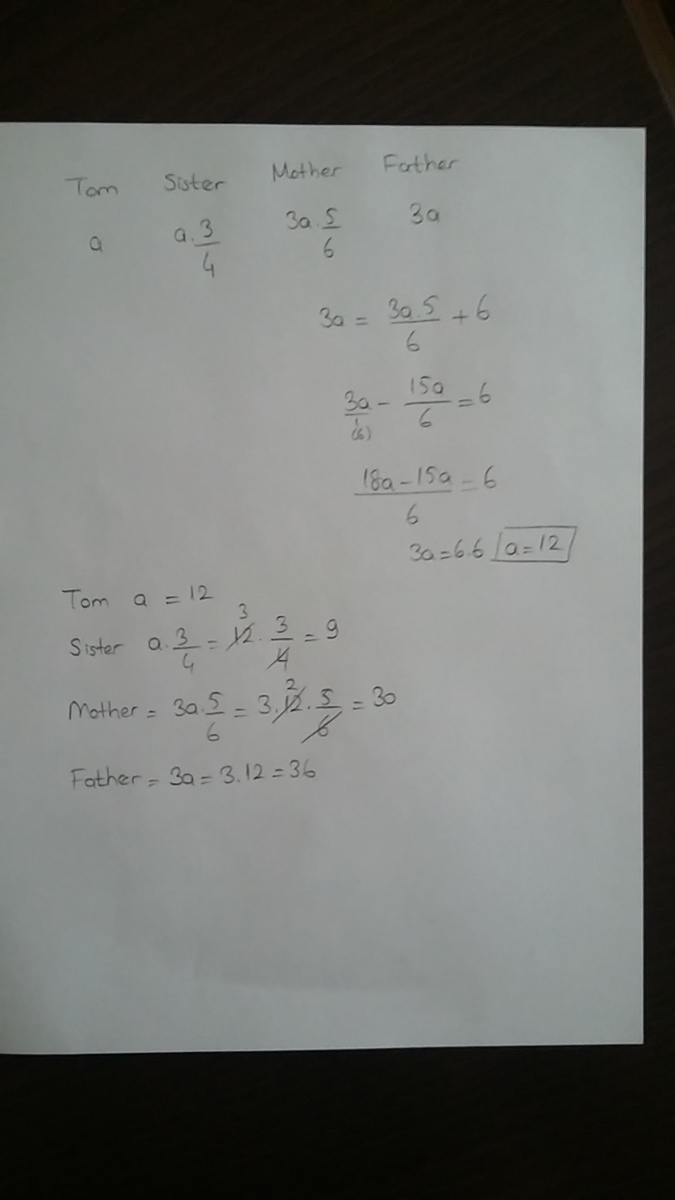 Tom Sister Mother Father
a a.3/4 3a.5/6 3a
3a = 3a.5/6 + 6
3a/1 - 15a/6 = 6
(6)
18a-15a/6 = 6
3a=6.6 a=12
Tom a = 12
3
Sister a.3/4 = 12.3/4 = 9
2
Mother = 3a.5/6 = 3.12.5/6 = 30
Father = 3a = 3.12 = 36